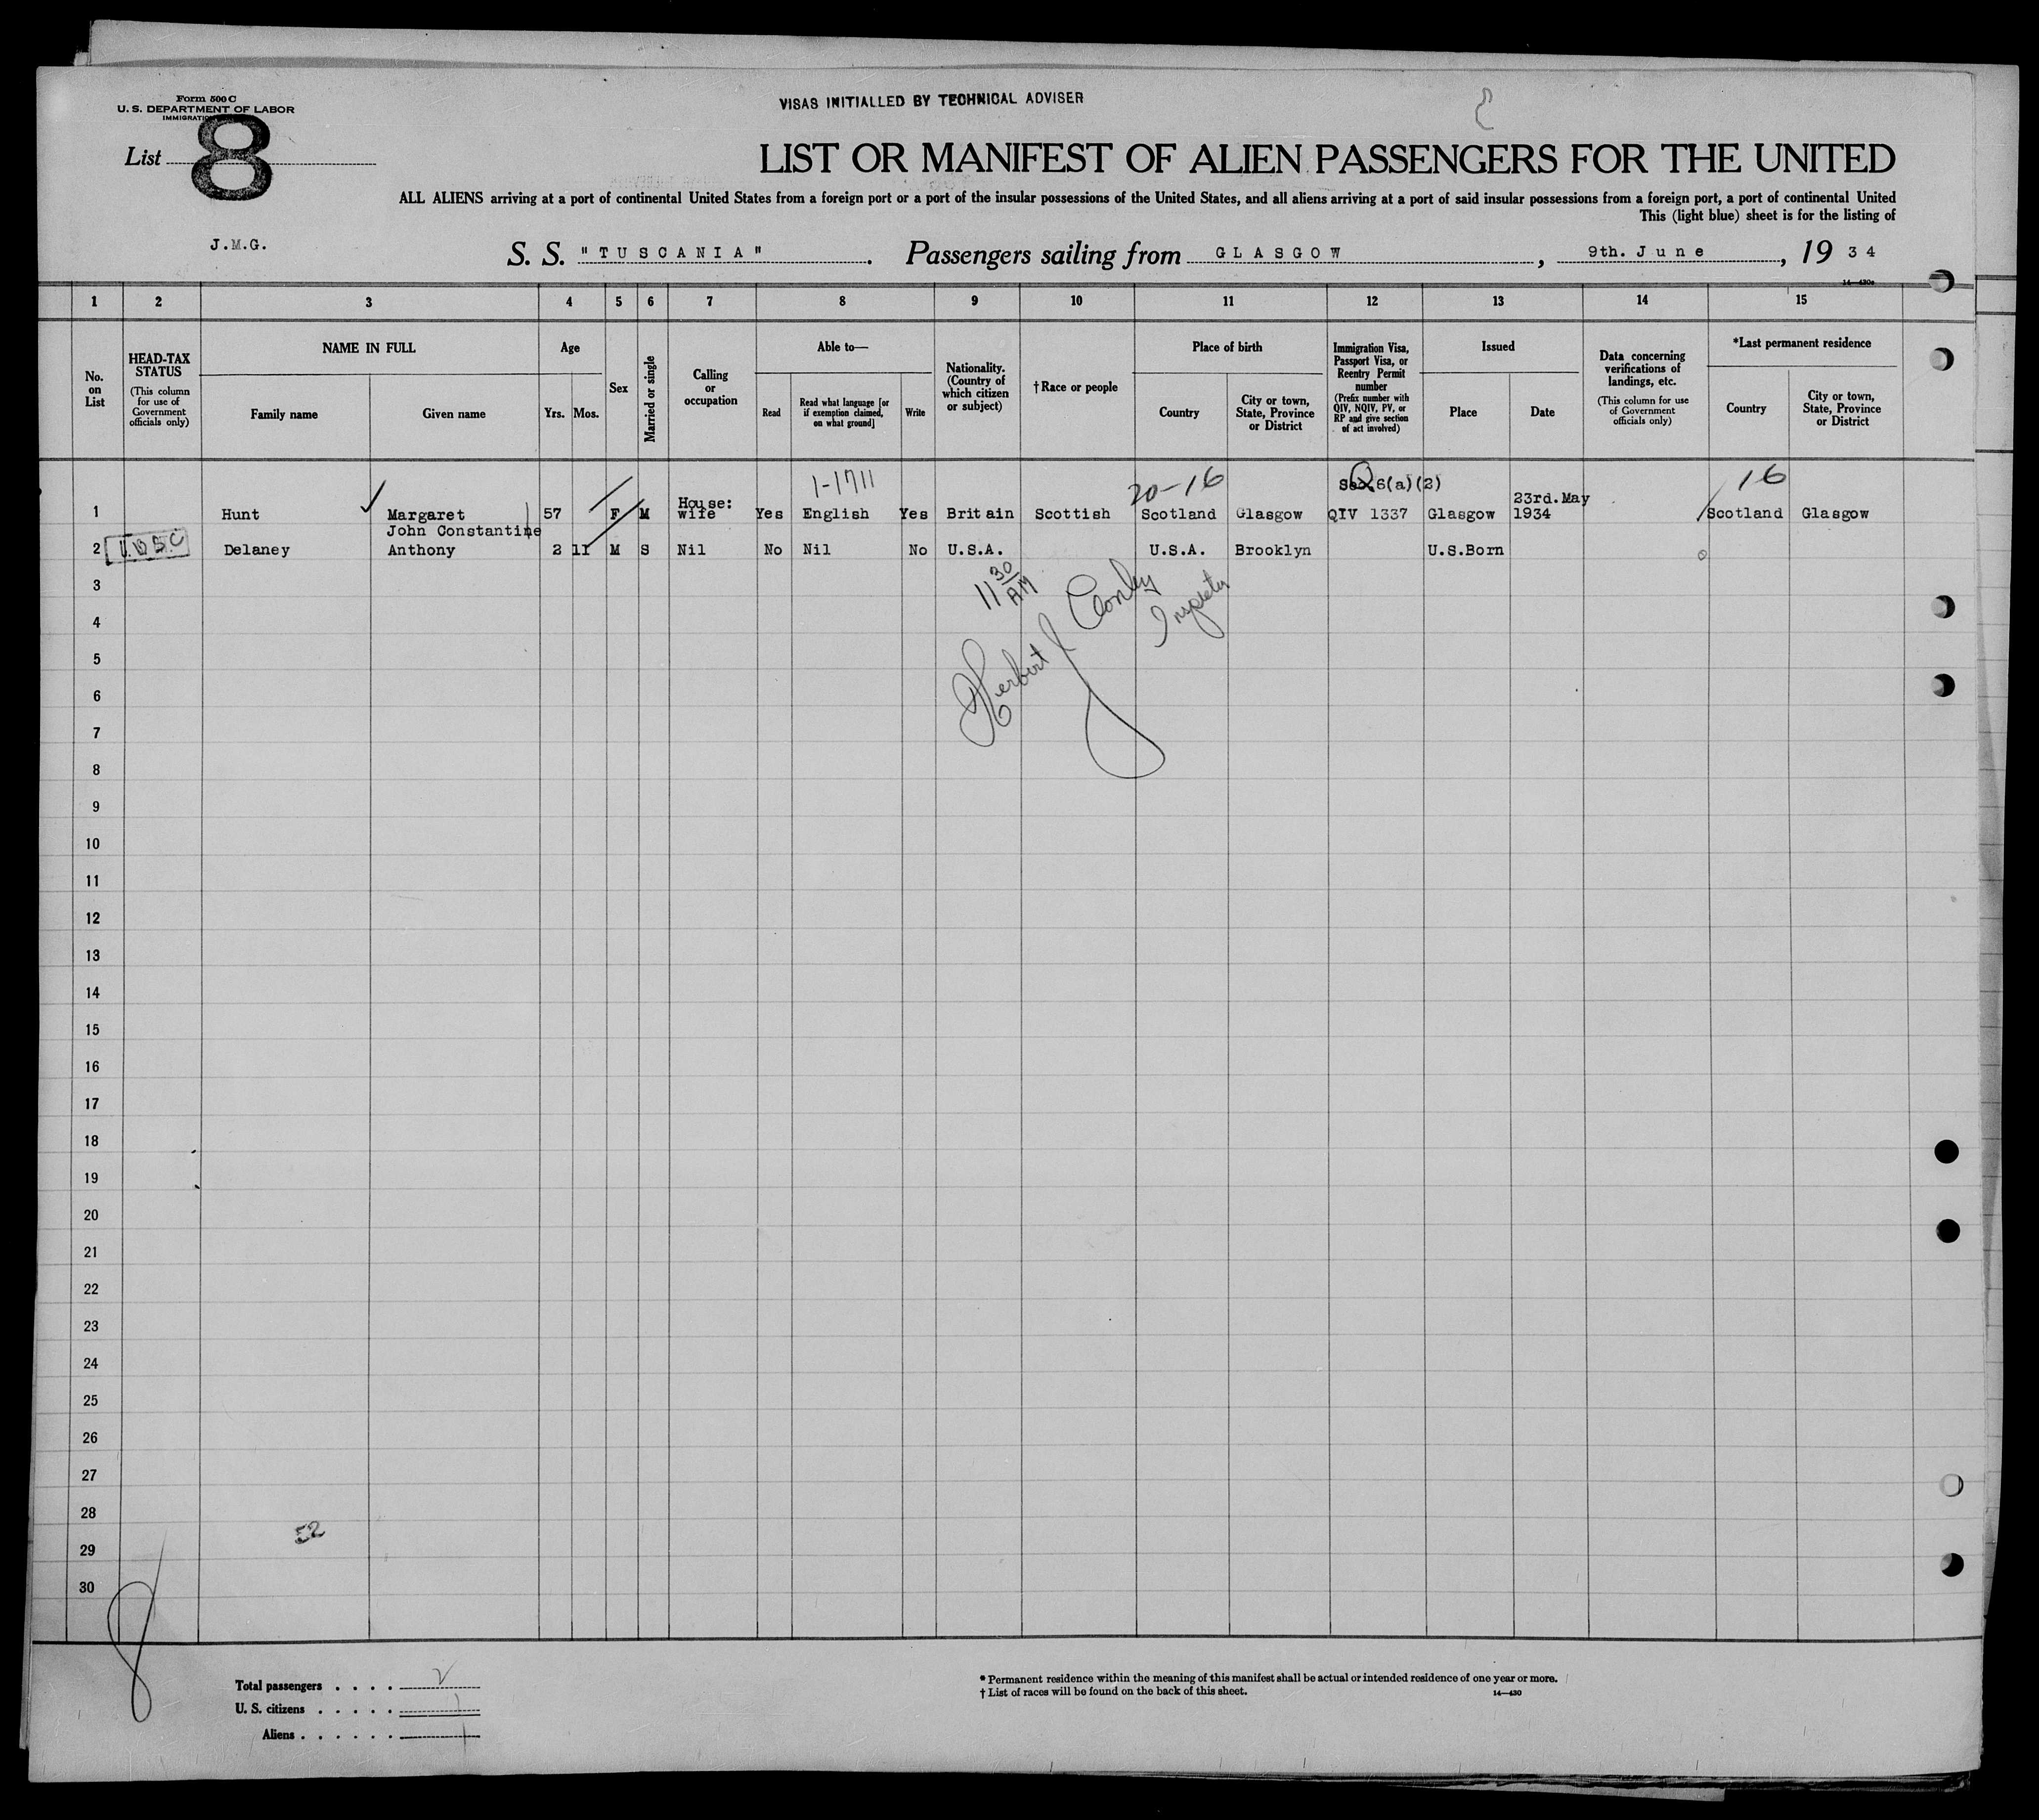 Form 500 C
U. S. DEPARTMENT OF LABOR
VISAS INITIALLED BY TECHNICAL ADVISER
List 8
LIST OR MANIFEST OF ALIEN PASSENGERS FOR THE UNITED
ALL ALIENS arriving at a port of continental United States from a foreign port or a port of the insular possessions of the United States, and all aliens arriving at a port of said insular possessions from a foreign port, a port of continental United
This (light blue) sheet is for the listing of
J.M.G.
S. S. "TUSCANIA". Passengers sailing from GLASGOW, 9th. June, 19 34
14—430a
1 2 3 4 5 6 7 8 9 10 11 12 13 14 15
No. on List
HEAD-TAX STATUS
(This column for use of Government officials only)
NAME IN FULL
Family name Given name
Age
Yrs. Mos.
Sex
Married or single
Calling or occupation
Able to—
Read
Read what language [or if exemption claimed, on what ground]
Write
Nationality. (Country of which citizen or subject)
†Race or people
Place of birth
Country
City or town, State, Province or District
Immigration Visa, Passport Visa, or Reentry Permit number
(Prefix number with QIV, NQIV, PV, or RP and give section of act involved)
Issued
Place Date
Data concerning verifications of landings, etc.
(This column for use of Government officials only)
*Last permanent residence
Country
City or town, State, Province or District
1-1711 20-16 Q 6(a)(2) 16
1 Hunt Margaret 57 F M House: wife Yes English Yes Britain Scottish Scotland Glasgow QIV 1337 Glasgow 23rd. May 1934 Scotland Glasgow
2 U.S.B.C Delaney John Constantine Anthony 2 11 M S Nil No Nil No U.S.A. U.S.A. Brooklyn U.S.Born
11 30 AM
Herbert J Conley
Inspector
3
4
5
6
7
8
9
10
11
12
13
14
15
16
17
18
19
20
21
22
23
24
25
26
27
28
52
29
30
8
Total passengers . . . . 2
U. S. citizens . . . . . 1
Aliens . . . . . . 1
* Permanent residence within the meaning of this manifest shall be actual or intended residence of one year or more.
† List of races will be found on the back of this sheet. 14—430